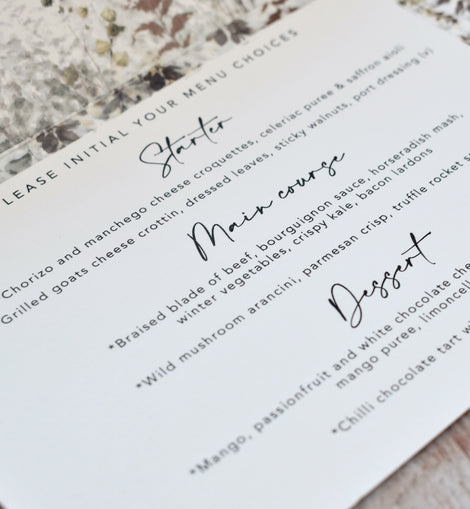 LEASE INITIAL YOUR MENU CHOICES
Starter
Chorizo and manchego cheese croquettes, celeriac puree & saffron aioli
Grilled goats cheese crottin, dressed leaves, sticky walnuts, port dressing (v)
Main course
*Braised blade of beef, bourguignon sauce, horseradish mash,
winter vegetables, crispy kale, bacon lardons
*Wild mushroom arancini, parmesan crisp, truffle rocket s
Dessert
*Mango, passionfruit and white chocolate che
mango puree, limoncell
*Chilli chocolate tart w